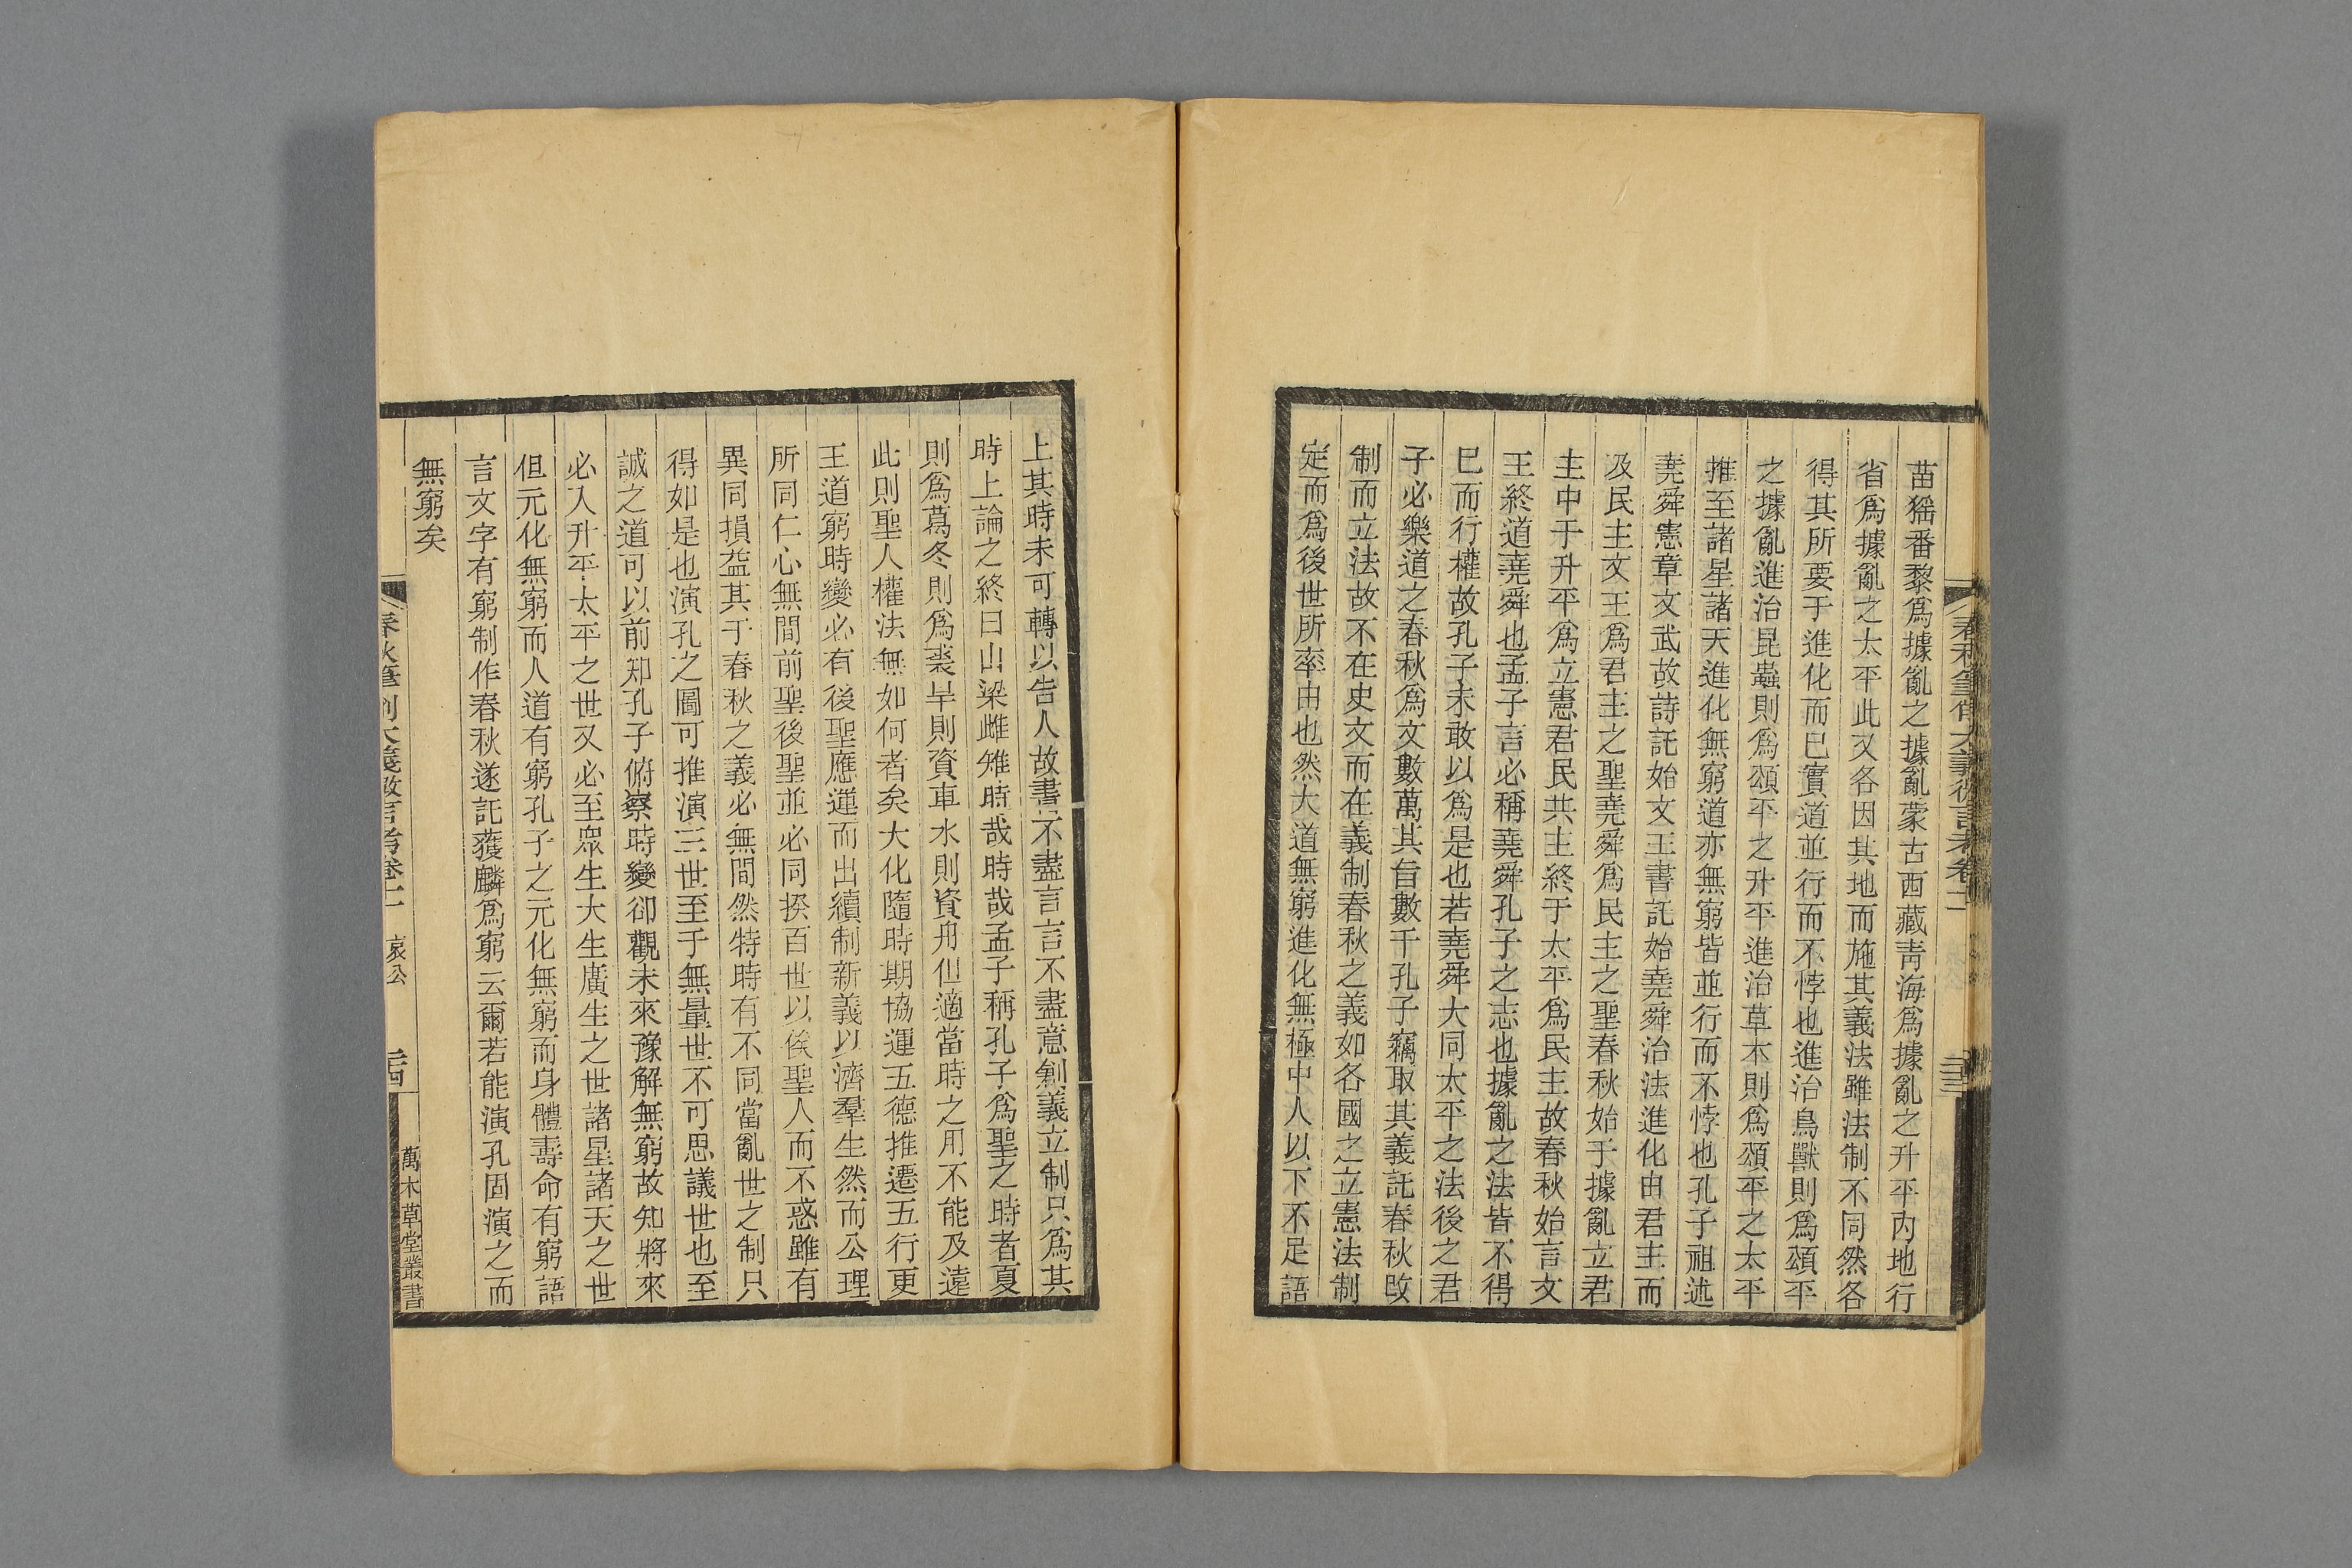 苗猺番黎爲據亂之據亂蒙古西藏靑海爲據亂之升平內地行
省爲據亂之太平此又各因其地而施其義法雖法制不同然各
得其所要于進化而已實道並行而不悖也進治鳥獸則爲頌平
之據亂進治昆蟲則爲頌平之升平進治草木則爲頌平之太平
推至諸星諸天進化無窮道亦無窮皆並行而不悖也孔子祖述
堯舜憲章文武故詩託始文王書託始堯舜治法進化由君主而
及民主文王爲君主之聖堯舜爲民主之聖春秋始于據亂立君
主中于升平爲立憲君民共主終于太平爲民主故春秋始言文
王終道堯舜也孟子言必稱堯舜孔子之志也據亂之法皆不得
已而行權故孔子未敢以爲是也若堯舜大同太平之法後之君
子必樂道之春秋爲文數萬其旨數千孔子竊取其義託春秋改
制而立法故不在史文而在義制春秋之義如各國之立憲法制
定而爲後世所率由也然大道無窮進化無極中人以下不足語
上其時未可轉以告人故書不盡言言不盡意創義立制只爲其
時上論之終曰山梁雌雉時哉時哉孟子稱孔子爲聖之時者夏
則爲葛冬則爲裘旱則資車水則資舟但適當時之用不能及遠
此則聖人權法無如何者矣大化隨時期協運五德推遷五行更
王道窮時變必有後聖應運而出續制新義以濟羣生然而公理
所同仁心無間前聖後聖並必同揆百世以俟聖人而不惑雖有
異同損益其于春秋之義必無間然特時有不同當亂世之制只
得如是也演孔之圖可推演三世至于無量世不可思議世也至
誠之道可以前知孔子俯察時變卻觀未來豫解無窮故知將來
必入升平太平之世又必至眾生大生廣生之世諸星諸天之世
但元化無窮而人道有窮孔子之元化無窮而身體壽命有窮語
言文字有窮制作春秋遂託獲麟爲窮云爾若能演孔固演之而
無窮矣
春秋筆削大義微言考卷十一 哀公 二十四 萬木草堂叢書